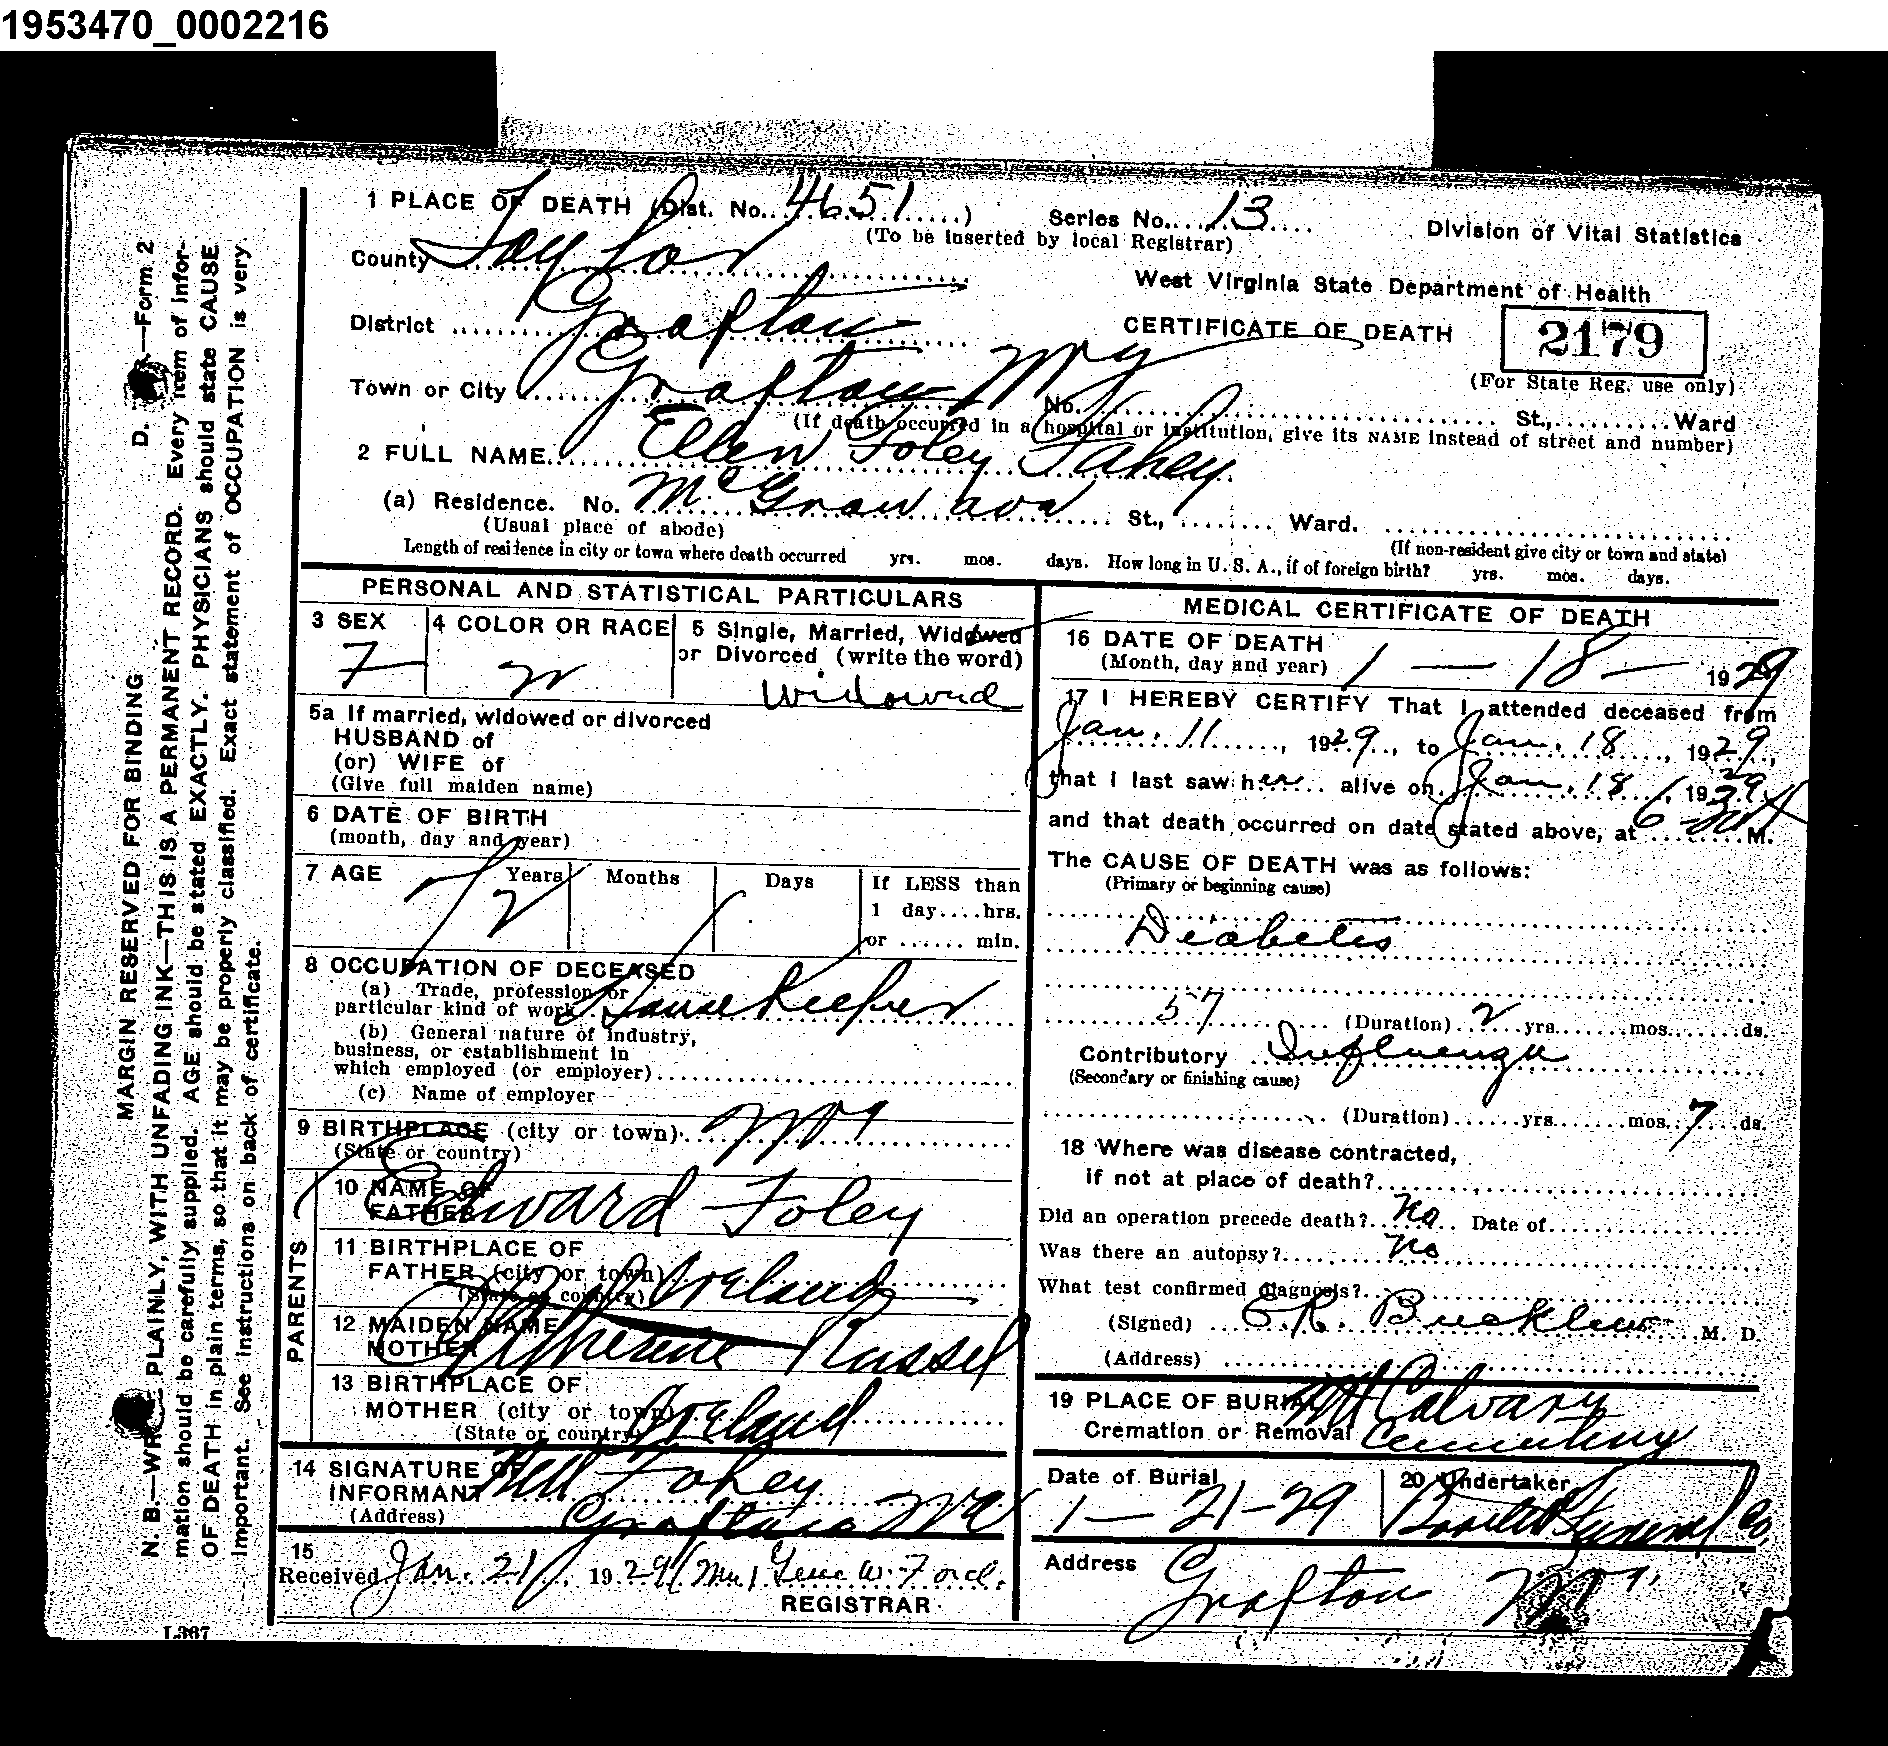 1953470_0002216
1 PLACE OF DEATH (Dist. No. 4651) Series No. 13
(To be inserted by local Registrar)
Division of Vital Statistics
County Taylor
West Virginia State Department of Health
District Grafton
CERTIFICATE OF DEATH
2179
(For State Reg. use only)
Town or City Grafton
No. St., Ward
(If death occurred in a hospital or institution, give its NAME instead of street and number)
2 FULL NAME Ellen Foley Fahey
(a) Residence. No. McGraw ava St., Ward.
(Usual place of abode)
(If non-resident give city or town and state)
Length of residence in city or town where death occurred yrs. mos. days. How long in U. S. A., if of foreign birth? yrs. mos. days.
PERSONAL AND STATISTICAL PARTICULARS
3 SEX
F
4 COLOR OR RACE
W
5 Single, Married, Widowed
or Divorced (write the word)
Widowed
5a If married, widowed or divorced
HUSBAND of
(or) WIFE of
(Give full maiden name)
6 DATE OF BIRTH
(month, day and year)
7 AGE Years Months Days
72
If LESS than
1 day....hrs.
or ...... min.
8 OCCUPATION OF DECEASED
(a) Trade, profession or
particular kind of work House Keeper
(b) General nature of industry,
business, or establishment in
which employed (or employer)
(c) Name of employer
9 BIRTHPLACE (city or town)
(State or country)
PARENTS
10 NAME OF
FATHER Edward Foley
11 BIRTHPLACE OF
FATHER (city or town) Ireland
(State or country)
12 MAIDEN NAME
MOTHER Catherine Russel
13 BIRTHPLACE OF
MOTHER (city or town) Ireland
(State or country)
14 SIGNATURE OF
INFORMANT Nell Fahey
(Address) Grafton
15
Received Jan. 21, 1929 (Mrs) Gene W. Ford.
REGISTRAR
MEDICAL CERTIFICATE OF DEATH
16 DATE OF DEATH
(Month, day and year) 1 — 18 — 1929
17 I HEREBY CERTIFY That I attended deceased from
Jan. 11, 1929, to Jan. 18, 1929,
that I last saw her alive on Jan. 18, 1929
and that death occurred on date stated above, at 6 M.
The CAUSE OF DEATH was as follows:
(Primary or beginning cause)
Diabetis
57 (Duration) 2 yrs. mos. ds.
Contributory Influenza
(Secondary or finishing cause)
(Duration) yrs. mos. 7 ds.
18 Where was disease contracted,
if not at place of death?
Did an operation precede death? No Date of
Was there an autopsy? No
What test confirmed diagnosis?
(Signed) C.R. Bucklew M. D.
(Address)
19 PLACE OF BURIAL Mt Calvary
Cremation or Removal Cemetery
Date of Burial
1 — 21 - 29
20 Undertaker
Funeral Co.
Address
Grafton
MARGIN RESERVED FOR BINDING D. R.—Form 2
N. B.—WRITE PLAINLY, WITH UNFADING INK—THIS IS A PERMANENT RECORD. Every item of infor-
mation should be carefully supplied. AGE should be stated EXACTLY. PHYSICIANS should state CAUSE
OF DEATH in plain terms, so that it may be properly classified. Exact statement of OCCUPATION is very
important. See instructions on back of certificate.
L367